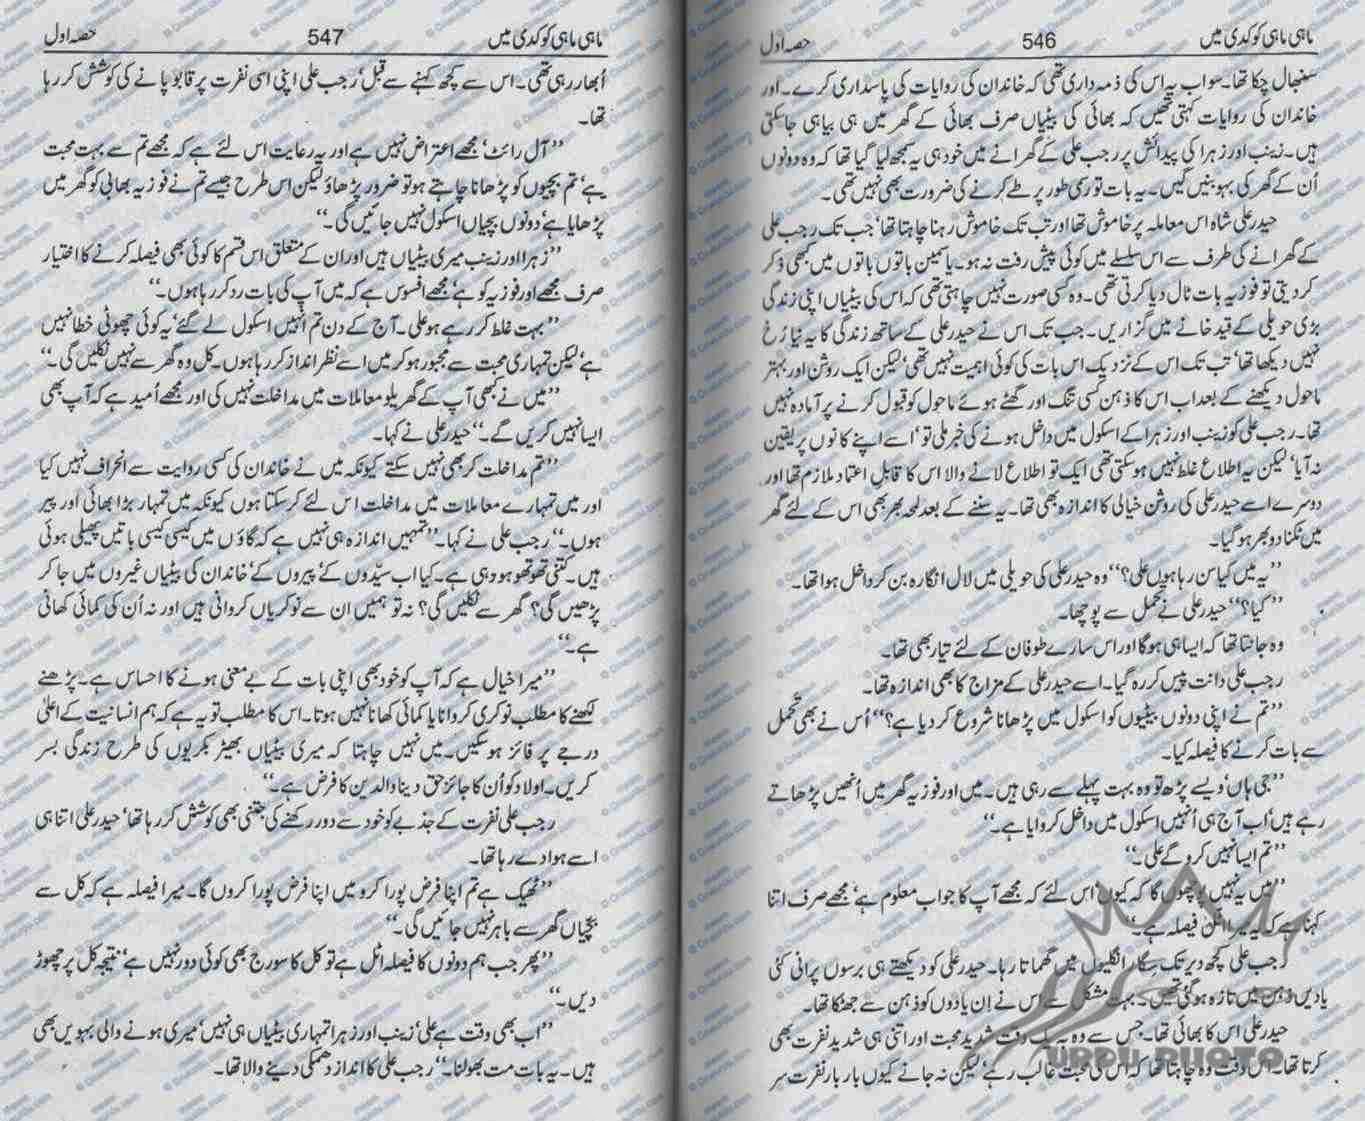 ماہی ماہی کوکدی میں 546 حصہ اول
سنبھال چکا تھا۔ سو اب یہ اس کی ذمہ داری تھی کہ خاندان کی روایات کی پاسداری کرے۔ اور
خاندان کی روایات کہتی تھیں کہ بھائی کی بیٹیاں صرف بھائی کے گھر میں ہی بیاہی جاسکتی
ہیں۔ زینب اور زہرا کی پیدائش پر رجب علی کے گھرانے میں خود ہی یہ سمجھ لیا گیا تھا کہ وہ دونوں
اُن کے گھر کی بہو بنیں گیں۔ یہ بات تو رسمی طور پر طے کرنے کی ضرورت بھی نہیں تھی۔
حیدر علی شاہ اس معاملہ پر خاموش تھا اور تب تک خاموش رہنا چاہتا تھا‘ جب تک رجب علی
کے گھرانے کی طرف سے اس سلسلے میں کوئی پیش رفت نہ ہو۔ یاسمین باتوں باتوں میں کبھی ذکر
کر دیتی تو فوزیہ بات ٹال دیا کرتی تھی۔ وہ کسی صورت نہیں چاہتی تھی کہ اس کی بیٹیاں اپنی زندگی
بڑی حویلی کے قید خانے میں گزاریں۔ جب تک اس نے حیدر علی کے ساتھ زندگی کا یہ نیا رُخ
نہیں دیکھا تھا‘ تب تک اس کے نزدیک اس بات کی کوئی اہمیت نہیں تھی‘ لیکن ایک روشن اور بہتر
ماحول دیکھنے کے بعد اب اس کا ذہن کسی تنگ اور گھٹے ہوئے ماحول کو قبول کرنے پر آمادہ نہیں
تھا۔ رجب علی کو زینب اور زہرا کے اسکول میں داخل ہونے کی خبر ملی تو‘ اسے اپنے کانوں پر یقین
نہ آیا‘ لیکن یہ اطلاع غلط نہیں ہو سکتی تھی ایک تو اطلاع لانے والا اس کا قابلِ اعتماد ملازم تھا اور
دوسرے اسے حیدر علی کی روشن خیالی کا اندازہ بھی تھا۔ یہ سننے کے بعد لمحہ بھر بھی اس کے لئے گھر
میں ٹکنا دوبھر ہو گیا۔
’’یہ میں کیا سن رہا ہوں علی؟‘‘ وہ حیدر علی کی حویلی میں لال انگارہ بن کر داخل ہوا تھا۔
’’کیا؟‘‘ حیدر علی نے تحمل سے پوچھا۔
وہ جانتا تھا کہ ایسا ہی ہوگا اور اس سارے طوفان کے لئے تیار بھی تھا۔
رجب علی دانت پیس کر رہ گیا۔ اسے حیدر علی کے مزاج کا بھی اندازہ تھا۔
’’تم نے اپنی دونوں بیٹیوں کو اسکول میں پڑھانا شروع کر دیا ہے؟‘‘ اُس نے بھی تحمل
سے بات کرنے کا فیصلہ کیا۔
’’جی ہاں‘ ویسے پڑھ تو وہ بہت پہلے سے رہی ہیں۔ میں اور فوزیہ گھر میں اُنھیں پڑھاتے
رہے ہیں‘ اب آج ہی اُنہیں اسکول میں داخل کروایا ہے۔‘‘
’’تم ایسا نہیں کرو گے علی۔‘‘
’’میں یہ نہیں پوچھوں گا کہ کیوں‘ اس لئے کہ مجھے آپ کا جواب معلوم ہے‘ مجھے صرف اتنا
کہنا ہے کہ یہ میرا اٹل فیصلہ ہے۔‘‘
رجب علی کچھ دیر تک سگار انگلیوں میں گھماتا رہا۔ حیدر علی کو دیکھتے ہی برسوں پرانی کئی
یادیں ذہن میں تازہ ہو گئی تھیں۔ بہت مشکل سے اس نے اِن یادوں کو ذہن سے جھٹکا تھا۔
حیدر علی اس کا بھائی تھا۔ جس سے وہ بیک وقت شدید محبت اور اتنی ہی شدید نفرت بھی
کرتا تھا۔ اس وقت وہ چاہتا تھا کہ اس کی محبت غالب رہے‘ لیکن نہ جانے کیوں بار بار نفرت سر
URDU PHOTO
ماہی ماہی کوکدی میں 547 حصہ اول
اُبھار رہی تھی۔ اس سے کچھ کہنے سے قبل‘ رجب علی اپنی اسی نفرت پر قابو پانے کی کوشش کر رہا
تھا۔
’’آل رائٹ‘ مجھے اعتراض نہیں ہے اور یہ رعایت اس لئے ہے کہ مجھے تم سے بہت محبت
ہے‘ تم بچیوں کو پڑھانا چاہتے ہو تو ضرور پڑھاؤ لیکن اس طرح جیسے تم نے فوزیہ بھابی کو گھر میں
پڑھایا ہے‘ دونوں بچیاں اسکول نہیں جائیں گی۔‘‘
’’زہرا اور زینب میری بیٹیاں ہیں اور ان کے متعلق اس قسم کا کوئی بھی فیصلہ کرنے کا اختیار
صرف مجھے اور فوزیہ کو ہے‘ مجھے افسوس ہے کہ میں آپ کی بات رد کر رہا ہوں۔‘‘
’’بہت غلط کر رہے ہو علی۔ آج کے دن تم اُنہیں اسکول لے گئے‘ یہ کوئی چھوٹی خطا نہیں
ہے‘ لیکن تمہاری محبت سے مجبور ہو کر میں اسے نظر انداز کر رہا ہوں۔ کل وہ گھر سے نہیں نکلیں گی۔‘‘
’’میں نے کبھی آپ کے گھریلو معاملات میں مداخلت نہیں کی اور مجھے اُمید ہے کہ آپ بھی
ایسا نہیں کریں گے۔‘‘ حیدر علی نے کہا۔
’’تم مداخلت کر بھی نہیں سکتے کیونکہ میں نے خاندان کی کسی روایت سے انحراف نہیں کیا
اور میں تمہارے معاملات میں مداخلت اس لئے کر سکتا ہوں کیونکہ میں تمہارا بڑا بھائی اور پیر
ہوں۔‘‘ رجب علی نے کہا۔ ’’تمہیں اندازہ ہی نہیں ہے کہ گاؤں میں کیسی کیسی باتیں پھیلی ہوئی
ہیں۔ کتنی تھو تھو ہو رہی ہے۔ کیا اب سیّدوں کے‘ پیروں کے‘ خاندان کی بیٹیاں غیروں میں جا کر
پڑھیں گی؟ گھر سے نکلیں گی؟ نہ تو ہمیں ان سے نوکریاں کروانی ہیں اور نہ اُن کی کمائی کھانی
ہے۔‘‘
’’میرا خیال ہے کہ آپ کو خود بھی اپنی بات کے بے معنی ہونے کا احساس ہے۔ پڑھنے
لکھنے کا مطلب نوکری کروانا یا کمائی کھانا نہیں ہوتا۔ اس کا مطلب تو یہ ہے کہ ہم انسانیت کے اعلیٰ
درجے پر فائز ہو سکیں۔ میں نہیں چاہتا کہ میری بیٹیاں بھیڑ بکریوں کی طرح زندگی بسر
کریں۔ اولاد کو اُن کا جائز حق دینا والدین کا فرض ہے۔‘‘
رجب علی نفرت کے جذبے کو خود سے دور رکھنے کی جتنی بھی کوشش کر رہا تھا‘ حیدر علی اتنا ہی
اسے ہوا دے رہا تھا۔
’’ٹھیک ہے تم اپنا فرض پورا کرو میں اپنا فرض پورا کروں گا۔ میرا فیصلہ ہے کہ کل سے
بچیاں گھر سے باہر نہیں جائیں گی۔‘‘
’’پھر جب ہم دونوں کا فیصلہ اٹل ہے تو کل کا سورج بھی کوئی دور نہیں ہے‘ نتیجہ کل پر چھوڑ
دیں۔‘‘
’’اب بھی وقت ہے علی‘ زینب اور زہرا تمہاری بیٹیاں ہی نہیں‘ میری ہونے والی بہویں بھی
ہیں۔ یہ بات مت بھولنا۔‘‘ رجب علی کا انداز دھمکی دینے والا تھا۔